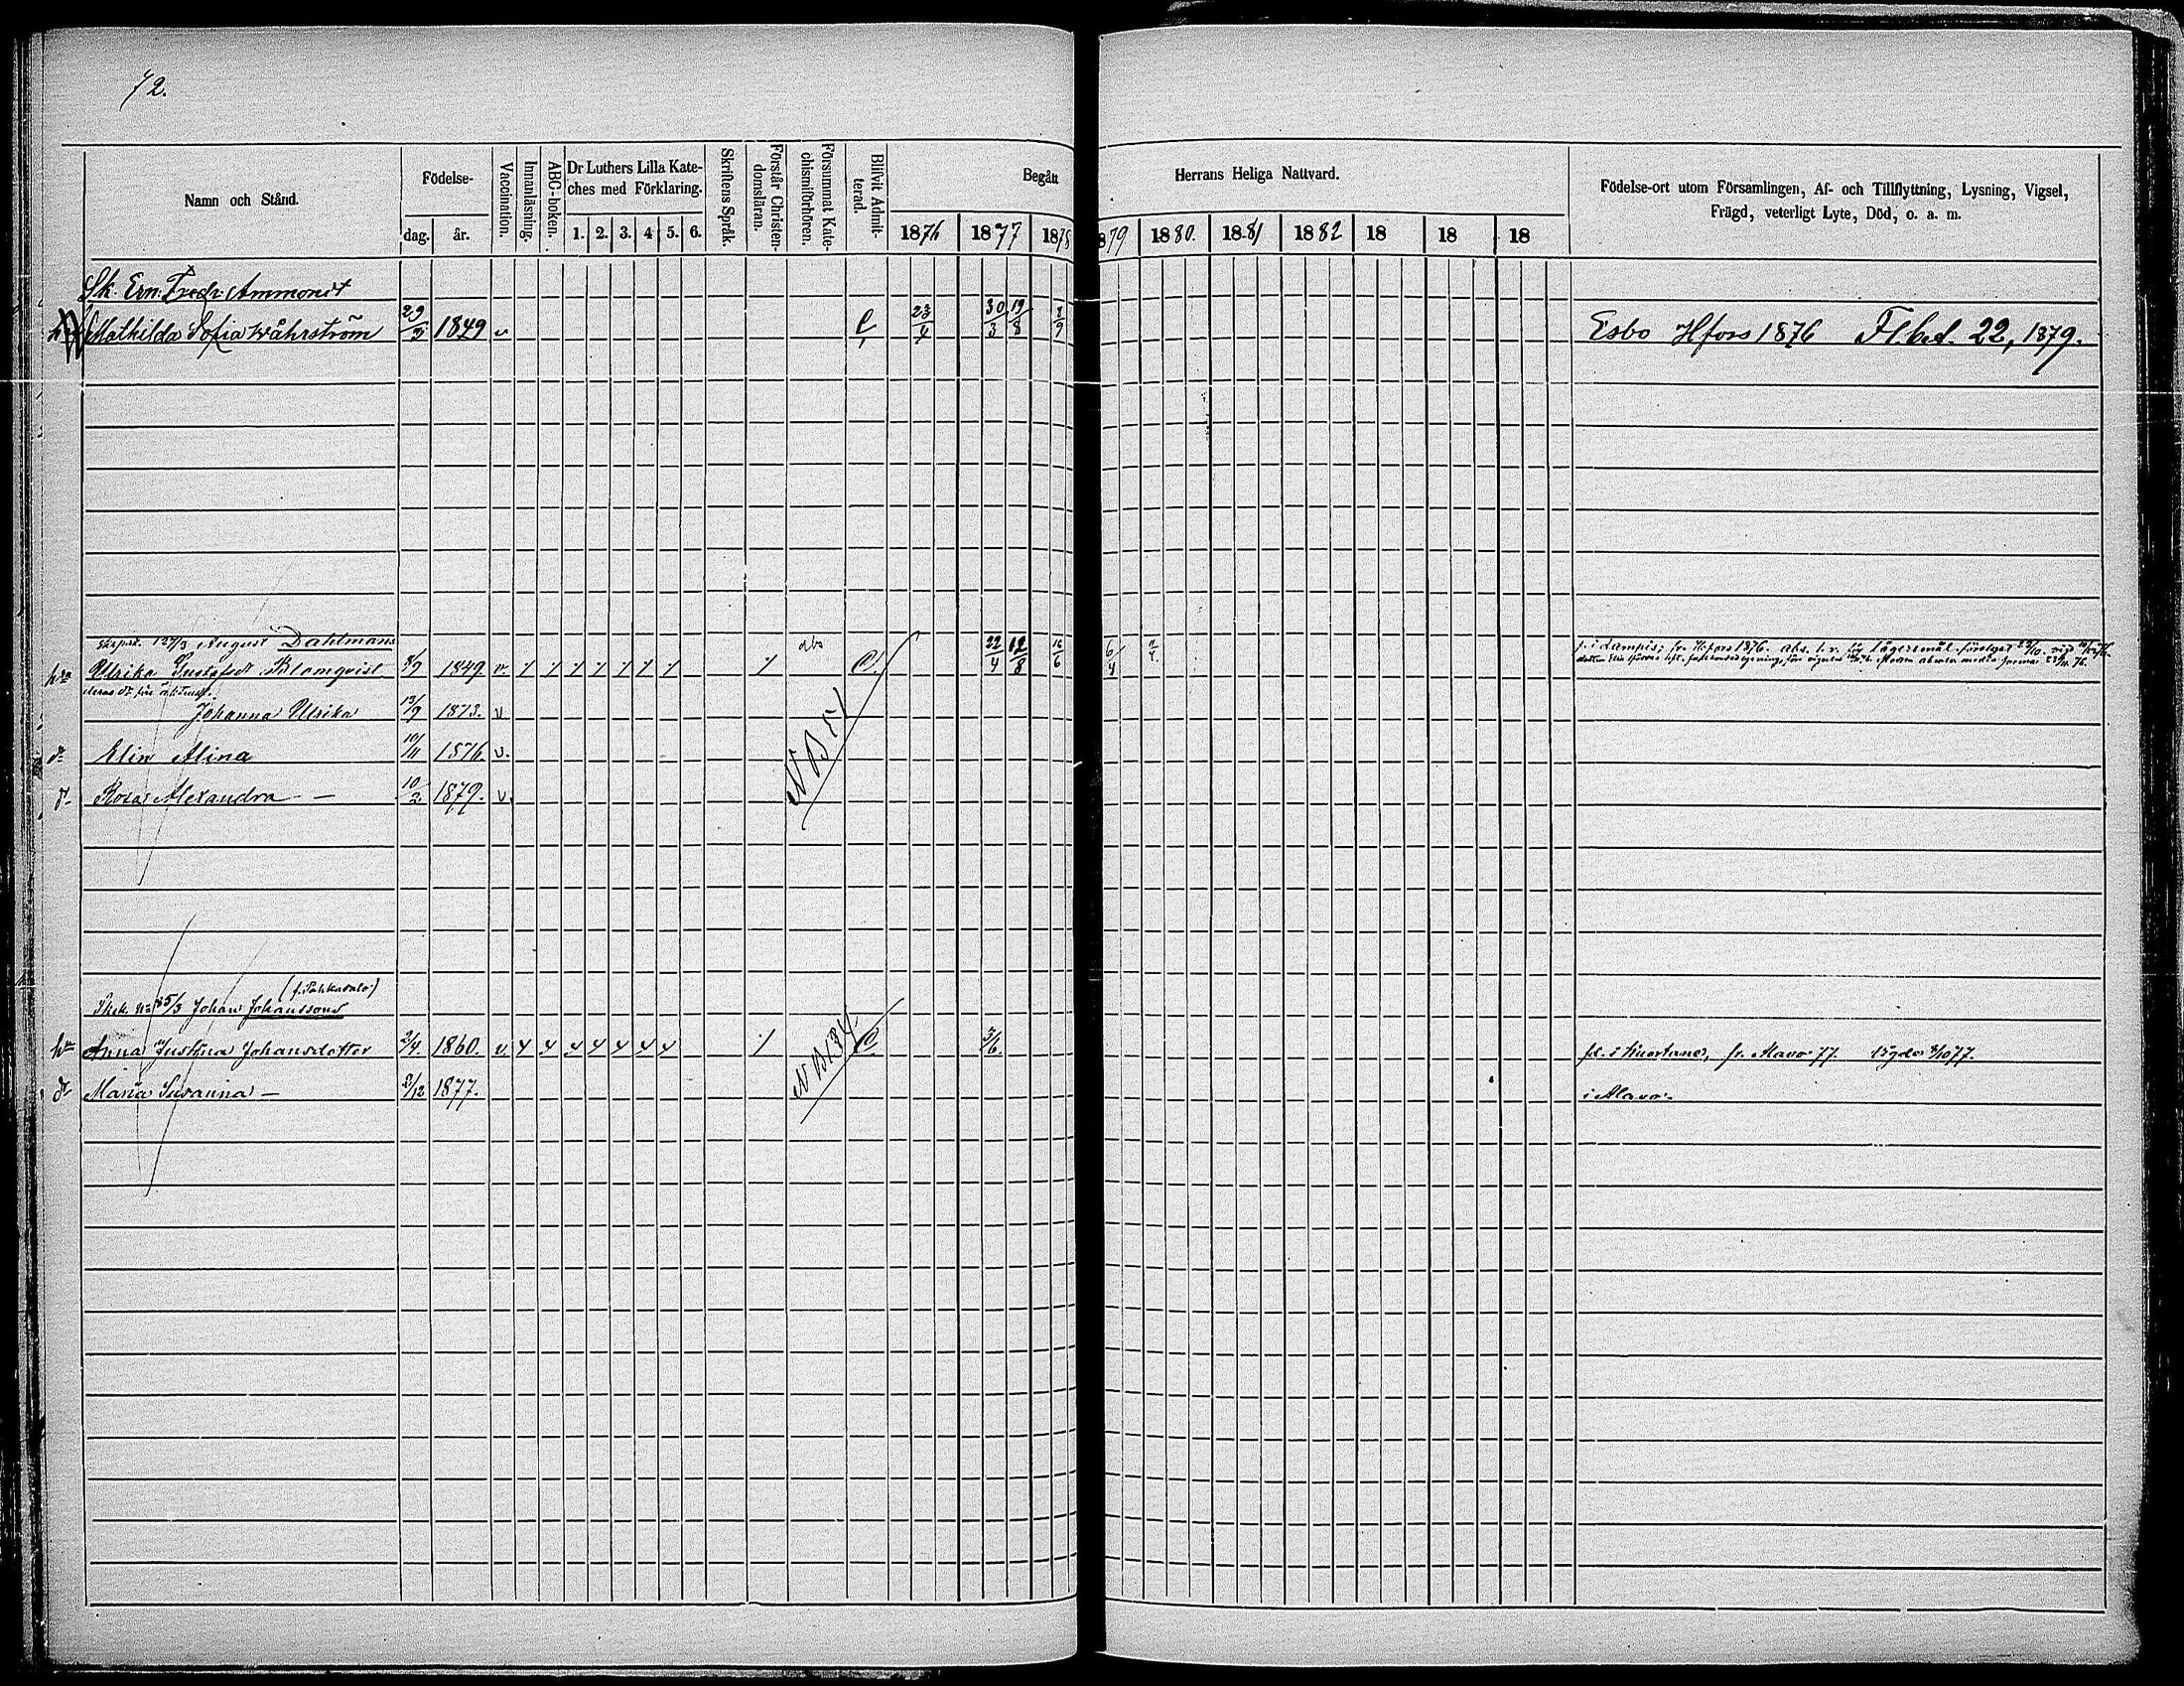 72.
Namn och Stånd.
Födelse-
dag. år.
Vaccination.
Innanläsning.
ABC-boken.
Dr Luthers Lilla Kate-
ches med Förklaring.
1. 2. 3. 4 5. 6.
Skriftens Språk.
Förstår Christen-
domsläran.
Försummat Kate-
chismiförhören.
Blifvit Admit-
terad.
Begått
Herrans Heliga Nattvard.
1876 1877 1878 879 1880. 18.81 1882 18 18 18
Födelse-ort utom Församlingen, Af- och Tillflyttning, Lysning, Vigsel,
Frägd, veterligt Lyte, Död, o. a. m.
Sk. Ern. Fredr. Ammondt
Mathilda Sofia Wåhrström 29/3 1849 v C 23/4 30/3 19/8 8/9 Esbo Hfors 1876 Fl. bet. 22, 1879.
127/3 August Dahlmans
hu Ulrika Gustafsdt Blomqvist 8/9 1849. v. C. 22/4 12/8 16/6 6/4 fr. Hfors 1876.
Johanna Ulrika 13/9 1873. v
dr Elin Alina 10/11 1876. v.
dr Rosa Alexandra — 10/2 1879. v.
NB 51
85/3 Johan Johanssons
hu Anna Justina Johansdotter 2/4. 1860. v C 3/6 fd. i Kuortane, fr. Alavo 77.
dr Maria Susanna — 3/12 1877. i Alavo.
NB 134